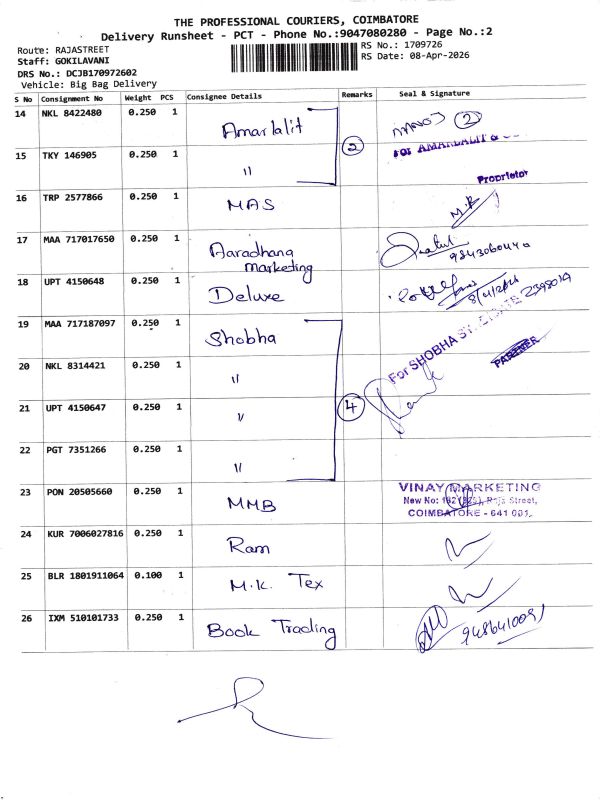 THE PROFESSIONAL COURIERS, COIMBATORE
Delivery Runsheet - PCT - Phone No.:9047080280 - Page No.:2
Route: RAJASTREET
RS No.: 1709726
Staff: GOKILAVANI
RS Date: 08-Apr-2026
DRS No.: DCJB170972602
Vehicle: Big Bag Delivery
S No Consignment No Weight PCS Consignee Details Remarks Seal & Signature
14 NKL 8422480 0.250 1 Amarlalit MANOJ 2
2 For AMARLALIT &
15 TKY 146905 0.250 1 "
Proprietor
16 TRP 2577866 0.250 1 MAS M.R
17 MAA 717017650 0.250 1 Aaradhana
marketing
18 UPT 4150648 0.250 1 Deluxe
19 MAA 717187097 0.250 1 Shobha
For SHOBHA
PARTNER
20 NKL 8314421 0.250 1 "
21 UPT 4150647 0.250 1 " 4
22 PGT 7351266 0.250 1 "
23 PON 20505660 0.250 1 MMB VINAY MARKETING
New No: Raja Street,
COIMBATORE - 641 001.
24 KUR 7006027816 0.250 1 Ram
25 BLR 1801911064 0.100 1 M.K. Tex
26 IXM 510101733 0.250 1 Book Trading